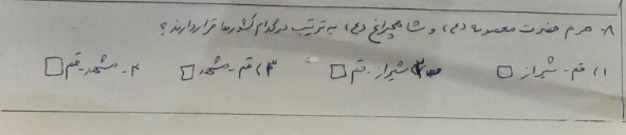 ۸- حرم حضرت معصومه (س) و شاهچراغ (ع) به ترتیب در کدام کشورها قرار دارند؟
۱) قم - شیراز □ ۲) شیراز - قم □ ۳) قم - مشهد □ ۴- مشهد - قم □